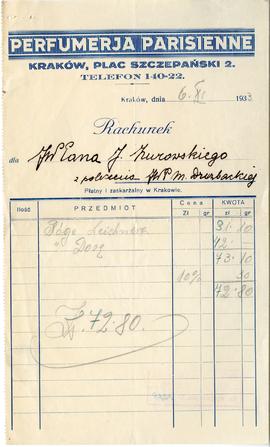 PERFUMERJA PARISIENNE
KRAKÓW, PLAC SZCZEPAŃSKI 2.
TELEFON 140-22.
Kraków, dnia 6. XI 1933
Rachunek
dla JWPana J. Żurowskiego
z polecenia JWP M. Drużbackiej
Płatny i zaskarżalny w Krakowie.
Ilość PRZEDMIOT Cena KWOTA
zł gr zł gr
31 10
42 —
73 10
10% 30
72 80
Zł. 72.80.